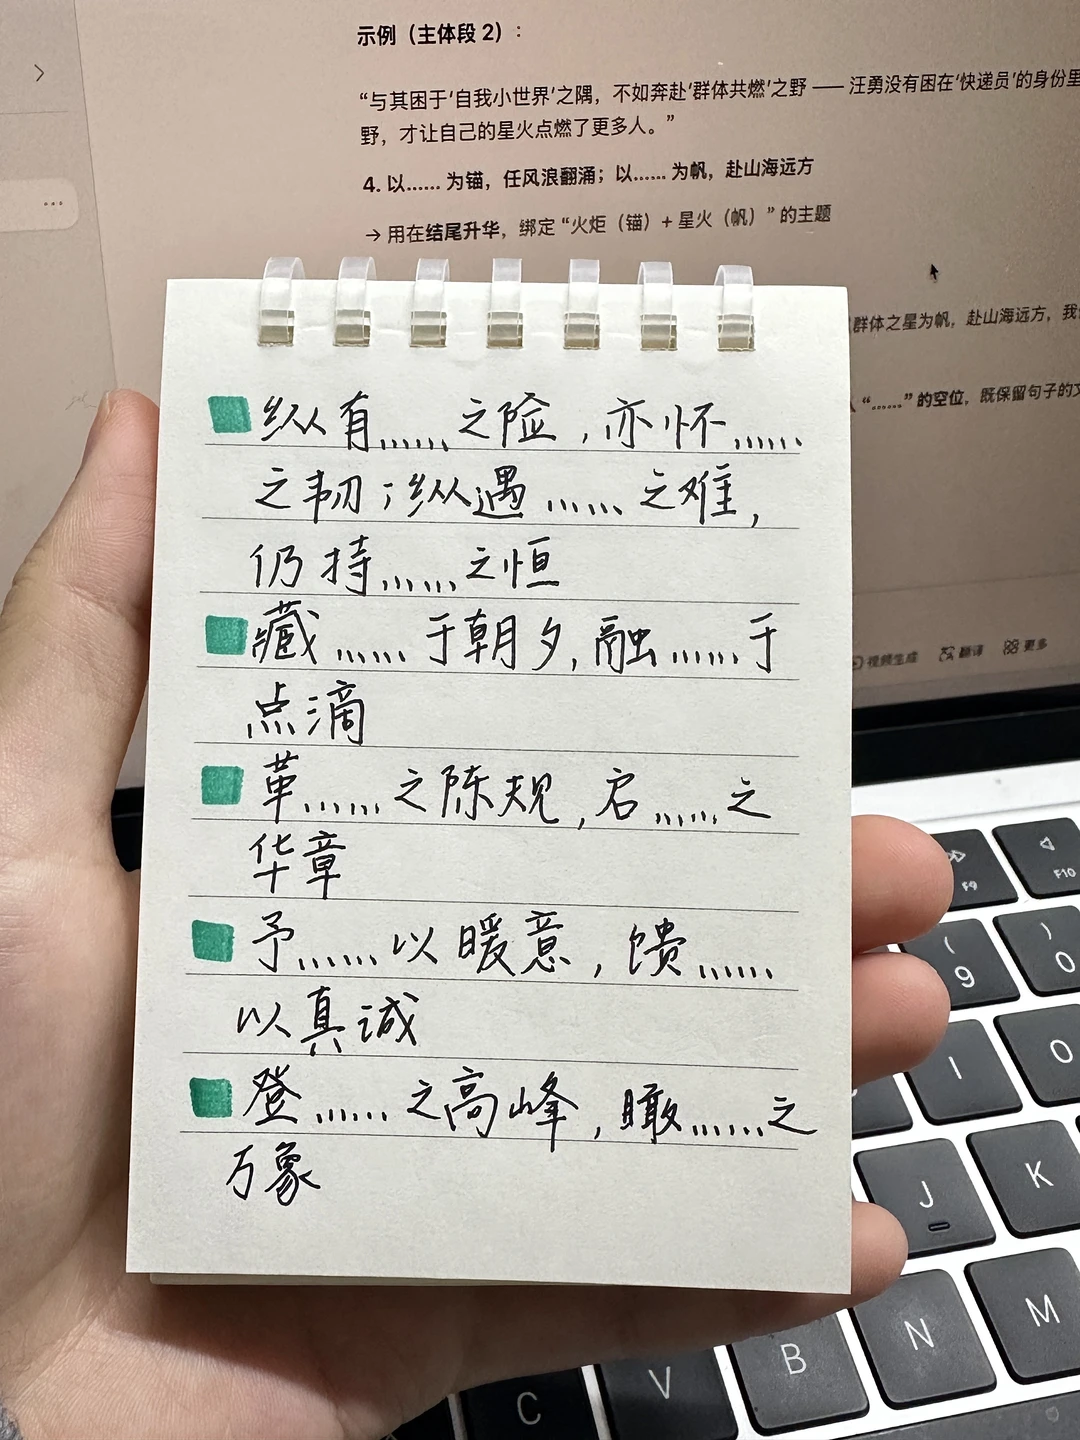 示例（主体段 2）：
“与其困于‘自我小世界’之隅，不如奔赴‘群体共燃’之野 —— 汪勇没有困在‘快递员’的身份里
野，才让自己的星火点燃了更多人。”
4. 以…… 为锚，任风浪翻涌；以…… 为帆，赴山海远方
→ 用在结尾升华，绑定 “火炬（锚）+ 星火（帆）” 的主题
群体之星为帆，赴山海远方，我
“……” 的空位，既保留句子的文
纵有……之险，亦怀……
之韧；纵遇……之难，
仍持……之恒
藏……于朝夕，融……于
点滴
革……之陈规，启……之
华章
予……以暖意，馈……
以真诚
登……之高峰，瞰……之
万象
视频生成 翻译 更多
F9
F10
(
9
)
0
I
O
J
K
C
V
B
N
M